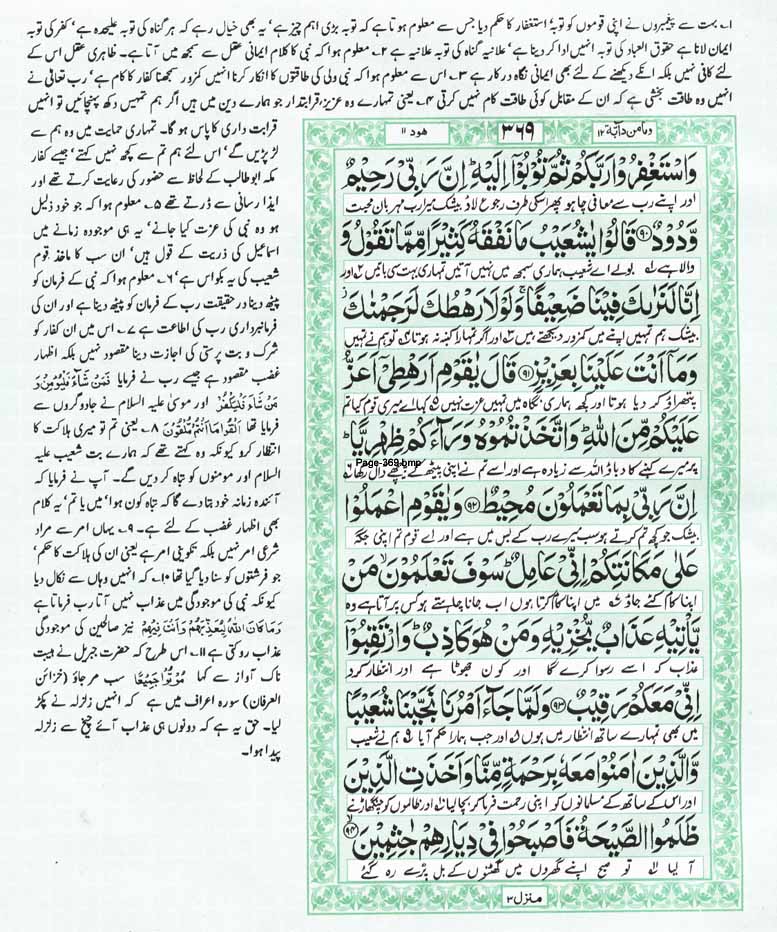 ۱۔ بہت سے پیغمبروں نے اپنی قوموں کو توبہ' استغفار کا حکم دیا جس سے معلوم ہوتا ہے کہ توبہ بڑی اہم چیز ہے' یہ بھی خیال رہے کہ ہر گناہ کی توبہ علیحدہ ہے' کفر کی توبہ
ایمان لانا ہے حقوق العباد کی توبہ انہیں ادا کر دینا ہے' علانیہ گناہ کی توبہ علانیہ ہے ۲۔ معلوم ہوا کہ نبی کا کلام ایمانی عقل سے سمجھ میں آتا ہے۔ ظاہری عقل اس کے
لئے کافی نہیں بلکہ انکے دیکھنے کے لئے بھی ایمانی نگاہ درکار ہے ۳۔ اس سے معلوم ہوا کہ نبی ولی کی طاقتوں کا انکار کرنا انہیں کمزور سمجھنا کفار کا کام ہے' رب تعالیٰ نے
انہیں وہ طاقت بخشی ہے کہ ان کے مقابل کوئی طاقت کام نہیں کرتی ۴۔ یعنی تمہارے وہ عزیز، قرابتدار جو ہمارے دین میں ہیں اگر ہم تمہیں دکھ پہنچائیں تو انہیں
قرابت داری کا پاس ہو گا۔ تمہاری حمایت میں وہ ہم سے
لڑ پڑیں گے' اس لئے ہم تم سے کچھ نہیں کہتے' جیسے کفار
مکہ ابوطالب کے لحاظ سے حضور کی رعایت کرتے تھے اور
ایذا رسانی سے ڈرتے تھے ۵۔ معلوم ہوا کہ جو خود ذلیل
ہو وہ نبی کی عزت کیا جانے' یہ ہی موجودہ زمانے میں
اسماعیل کی ذریت کے قول ہیں' ان سب کا ماخذ قوم
شعیب کی یہ بکواس ہے' ۶۔ معلوم ہوا کہ نبی کے فرمان کو
پیٹھ دینا در حقیقت رب کے فرمان کو پیٹھ دینا ہے اور ان کی
فرمانبرداری رب کی اطاعت ہے ۷۔ اس میں ان کفار کو
شرک و بت پرستی کی اجازت دینا مقصود نہیں بلکہ اظہار
غضب مقصود ہے جیسے رب نے فرمایا فَمَنْ شَآءَ فَلْيُؤْمِنْ وَّ
مَنْ شَآءَ فَلْيَكْفُرْ اور موسیٰ علیہ السلام نے جادوگروں سے
فرمایا تھا اَلْقُوْا مَا اَنْتُمْ مُّلْقُوْنَ ۸۔ یعنی تم تو میری ہلاکت کا
انتظار کرو کیونکہ وہ کہتے تھے کہ ہمارے بت شعیب علیہ
السلام اور مومنوں کو تباہ کر دیں گے۔ آپ نے فرمایا کہ
آئندہ زمانہ خود بتا دے گا کہ تباہ کون ہوا' میں یا تم' یہ کلام
بھی اظہار غضب کے لئے ہے۔ ۹۔ یہاں امر سے مراد
شرعی امر نہیں بلکہ تکوینی امر ہے یعنی ان کی ہلاکت کا حکم'
جو فرشتوں کو سنا دیا گیا تھا ۱۰۔ کہ انہیں وہاں سے نکال دیا
کیونکہ نبی کی موجودگی میں عذاب نہیں آتا رب فرماتا ہے
وَمَا كَانَ اللّٰهُ لِيُعَذِّبَهُمْ وَاَنْتَ فِيْهِمْ نیز صالحین کی موجودگی
عذاب روکتی ہے ۱۱۔ اس طرح کہ حضرت جبریل نے ہیبت
ناک آواز سے کہا مُوْتُوْا جَمِيْعًا سب مر جاؤ (خزائن
العرفان) سورہ اعراف میں ہے کہ انہیں زلزلہ نے پکڑ
لیا۔ حق یہ ہے کہ دونوں ہی عذاب آئے چیخ سے زلزلہ
پیدا ہوا۔
ومامن دآبۃ ۱۲ ۳۶۹ ھود ۱۱
وَاسْتَغْفِرُوْا رَبَّكُمْ ثُمَّ تُوْبُوْٓا اِلَيْهِ اِنَّ رَبِّيْ رَحِيْمٌ
اور اپنے رب سے معافی چاہو پھر اسکی طرف رجوع لاؤ بیشک میرا رب مہربان محبت
وَّدُوْدٌ ﴿۹۰﴾ قَالُوْا يٰشُعَيْبُ مَا نَفْقَهُ كَثِيْرًا مِّمَّا تَقُوْلُ وَ
والا ہے ۱ بولے اے شعیب ہماری سمجھ میں نہیں آتیں تمہاری بہت سی باتیں ۲ اور
اِنَّا لَنَرٰىكَ فِيْنَا ضَعِيْفًا ۚ وَلَوْلَا رَهْطُكَ لَرَجَمْنٰكَ ۡ
بیشک ہم تمہیں اپنے میں کمزور دیکھتے ہیں ۳ اور اگر تمہارا کنبہ نہ ہوتا ۴ تو ہم نے تمہیں
وَمَآ اَنْتَ عَلَيْنَا بِعَزِيْزٍ ﴿۹۱﴾ قَالَ يٰقَوْمِ اَرَهْطِيْٓ اَعَزُّ
پتھراؤ کر دیا ہوتا اور کچھ ہماری نگاہ میں تمہیں عزت نہیں ۵ کہا اے میری قوم کیا تم
عَلَيْكُمْ مِّنَ اللّٰهِ ؕ وَاتَّخَذْتُمُوْهُ وَرَآءَكُمْ ظِهْرِيًّا ؕ
پر میرے کنبے کا دباؤ اللہ سے زیادہ ہے اور اسے تم نے اپنی پیٹھ کے پیچھے ڈال رکھا ۶
Page-369.bmp
اِنَّ رَبِّيْ بِمَا تَعْمَلُوْنَ مُحِيْطٌ ﴿۹۲﴾ وَيٰقَوْمِ اعْمَلُوْا
بیشک جو کچھ تم کرتے ہو سب میرے رب کے بس میں ہے اور اے قوم تم اپنی جگہ
عَلٰى مَكَانَتِكُمْ اِنِّيْ عَامِلٌ ؕ سَوْفَ تَعْلَمُوْنَ ۙ مَنْ
اپنا کام کئے جاؤ ۷ میں اپنا کام کرتا ہوں اب جانا چاہتے ہو کس پر آتا ہے وہ
يَّاْتِيْهِ عَذَابٌ يُّخْزِيْهِ وَمَنْ هُوَ كَاذِبٌ ؕ وَارْتَقِبُوْٓا
عذاب کہ اسے رسوا کرے گا اور کون جھوٹا ہے اور انتظار کرو
اِنِّيْ مَعَكُمْ رَقِيْبٌ ﴿۹۳﴾ وَلَمَّا جَآءَ اَمْرُنَا نَجَّيْنَا شُعَيْبًا
میں بھی تمہارے ساتھ انتظار میں ہوں ۸ اور جب ہمارا حکم آیا ۹ ہم نے شعیب
وَّالَّذِيْنَ اٰمَنُوْا مَعَهٗ بِرَحْمَةٍ مِّنَّا وَاَخَذَتِ الَّذِيْنَ
اور اس کے ساتھ کے مسلمانوں کو اپنی رحمت فرما کر بچا لیا ۱۰ اور ظالموں کو چنگھاڑ نے
ظَلَمُوا الصَّيْحَةُ فَاَصْبَحُوْا فِيْ دِيَارِهِمْ جٰثِمِيْنَ ﴿۹۴﴾
آ لیا ۱۱ تو صبح اپنے گھروں میں گھٹنوں کے بل پڑے رہ گئے
منزل ۳